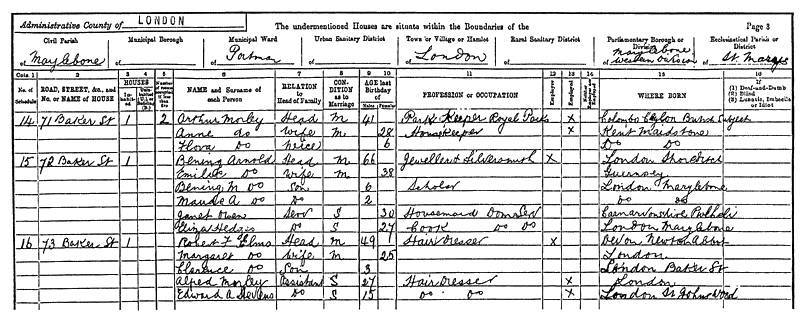 Administrative County of LONDON The undermentioned Houses are situate within the Boundaries of the Page 3
Civil Parish Municipal Borough Municipal Ward Urban Sanitary District Town or Village or Hamlet Rural Sanitary District Parliamentary Borough or Division Ecclesiastical Parish or District
of Marylebone of of Portman of of London of of Marylebone Western Division of St. Marys
Cols. 1 2 3 4 5 6 7 8 9 10 11 12 13 14 15 16
No. of Schedule ROAD, STREET, &c., and No. or NAME of HOUSE HOUSES NAME and Surname of each Person RELATION to Head of Family CONDITION as to Marriage AGE last Birthday of Males Females PROFESSION or OCCUPATION Employer Employed WHERE BORN If (1) Deaf-and-Dumb (2) Blind (3) Lunatic, Imbecile or Idiot
14 71 Baker St 1 2 Arthur Morley Head M 41 Park Keeper Royal Parks X Colombo Ceylon British Subject
Anne do Wife M 28 Housekeeper X Kent Maidstone
Flora Do Neice 6 Do Do
15 72 Baker St 1 Bening Arnold Head M 66 Jeweller & Silversmith X London Shoreditch
Emilie Do Wife M 38 Guernsey
Bening M Do Son 6 Scholar London Marylebone
Maude A Do D 2 Do Do
Janet Owen Serv S 30 Housemaid Dom Serv Caernarvonshire Pwllheli
Eliza Hedges Do S 27 Cook Do Do London Marylebone
16 73 Baker St 1 Robert F Elms Head M 49 Hair Dresser X Devon Newton Abbot
Margaret Do Wife M 25 London
Clarence Do Son 3 London Baker St
Alfred Morley Assistant S 27 Hair Dresser X London
Edward A Stevens Do S 15 Do Do X London St Johns Wood